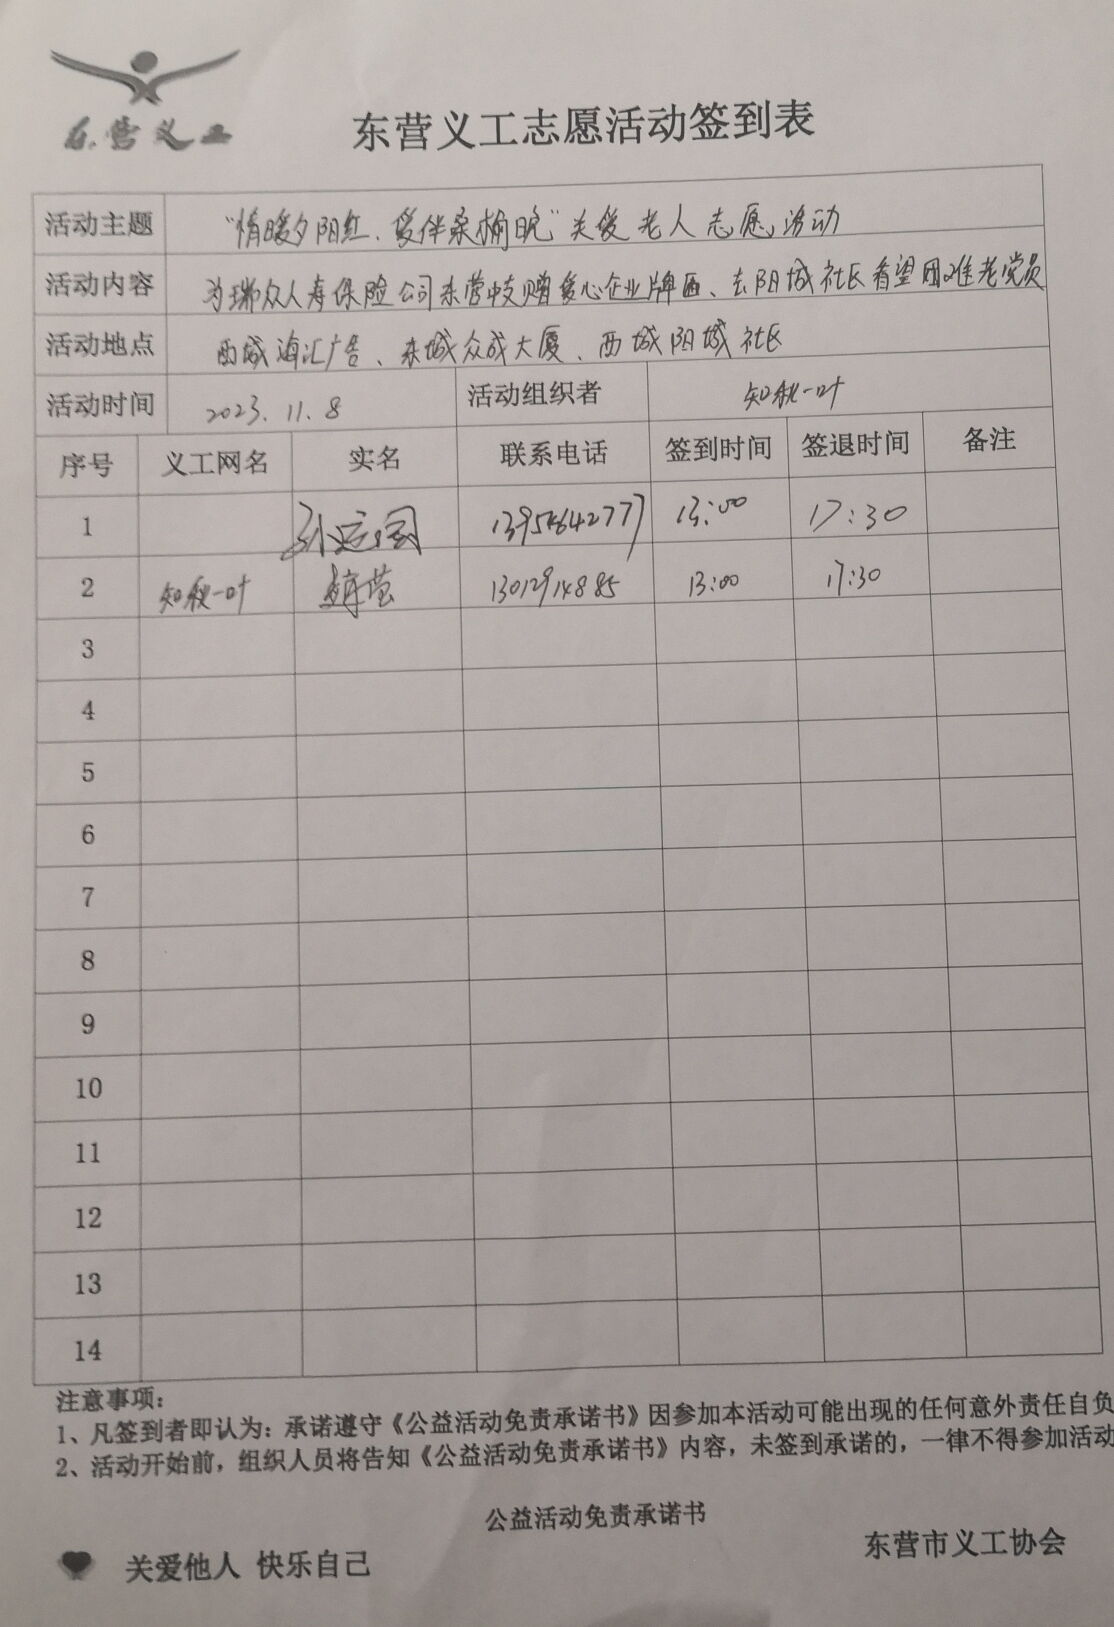 东营义工
东营义工志愿活动签到表
活动主题 “情暖夕阳红、爱伴桑榆晚”关爱老人志愿活动
活动内容 为瑞众人寿保险公司东营中支赠爱心企业牌匾、去阳城社区看望困难老党员
活动地点 西城海汇广告、东城众成大厦、西城阳城社区
活动时间 2023.11.8 活动组织者 知秋一叶
序号 义工网名 实名 联系电话 签到时间 签退时间 备注
1 孙运国 13:00 17:30
2 知秋一叶 13012914885 13:00 17:30
3
4
5
6
7
8
9
10
11
12
13
14
注意事项:
1、凡签到者即认为: 承诺遵守《公益活动免责承诺书》因参加本活动可能出现的任何意外责任自负
2、活动开始前, 组织人员将告知《公益活动免责承诺书》内容, 未签到承诺的, 一律不得参加活动
公益活动免责承诺书
关爱他人 快乐自己 东营市义工协会